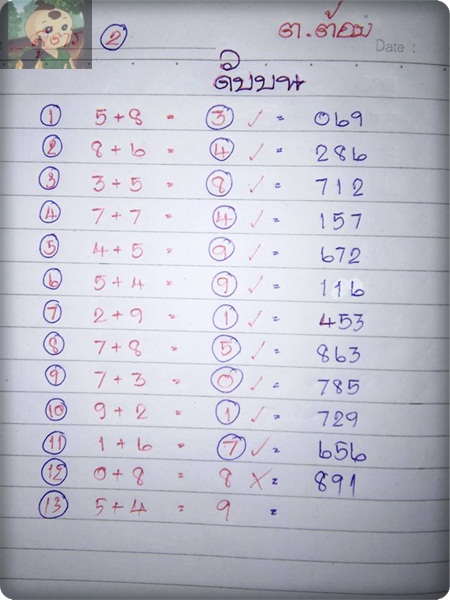 ② ต.ต้อม
Date :
ดับบน
① 5+8 = ③ ✓ = 069
② 8+6 = ④ ✓ = 286
③ 3+5 = ⑧ ✓ = 712
④ 7+7 = ④ ✓ = 157
⑤ 4+5 = ⑨ ✓ = 672
⑥ 5+4 = ⑨ ✓ = 116
⑦ 2+9 = ① ✓ = 453
⑧ 7+8 = ⑤ ✓ = 863
⑨ 7+3 = ⓪ ✓ = 785
⑩ 9+2 = ① ✓ = 729
⑪ 1+6 = ⑦ ✓ = 656
⑫ 0+8 = 8 X = 891
⑬ 5+4 = 9 =